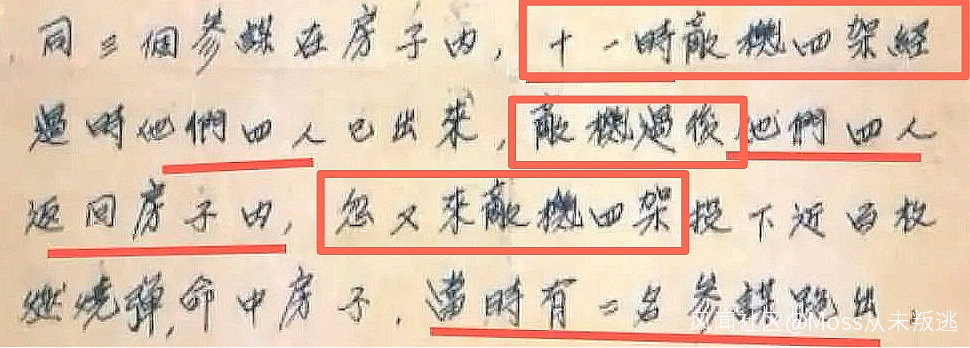 同三個參謀在房子內，十一時敵機四架經
過時他們四人已出來，敵機過後他們四人
返回房子內，忽又來敵機四架投下近百枚
燃燒彈，命中房子，當時有二名參謀跑出，
风闻社区@Moss从未叛逃